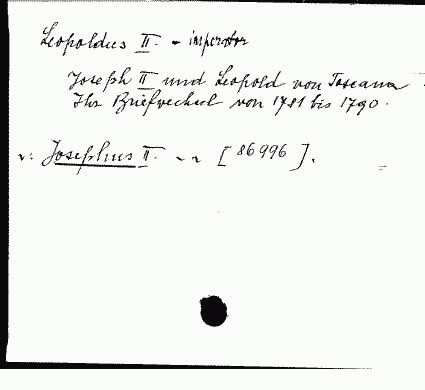 Leopoldus II. - imperator
Joseph II und Leopold von Toscana
Ihr Briefwechsel von 1781 bis 1790.
v: Josephus II. -„- [86996].